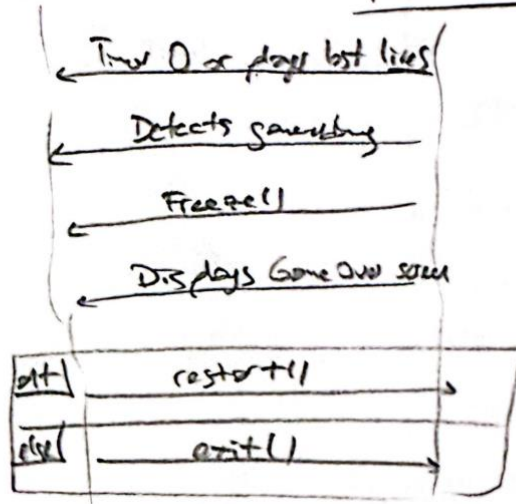 Timer 0 or player lost lives
Detects
Freeze()
Displays Game Over screen
alt restart()
else exit()